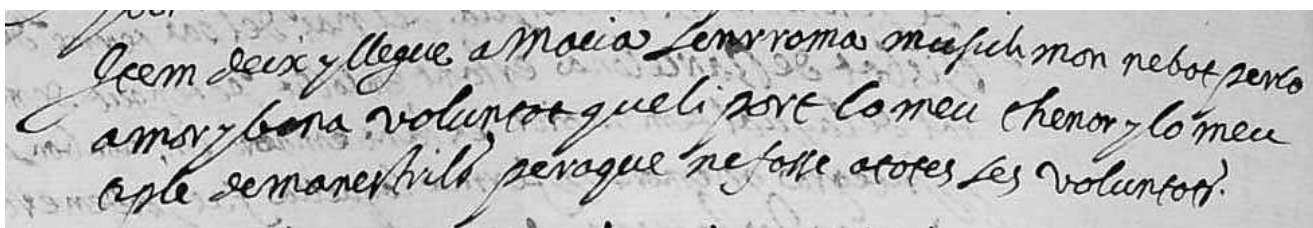 Item deix y llegue a Macia Senrroma musich mon nebot per lo
amor y bona voluntat que li port lo meu thenor y lo meu
tiple de manestrils peraque ne fasse a totes ses voluntats.